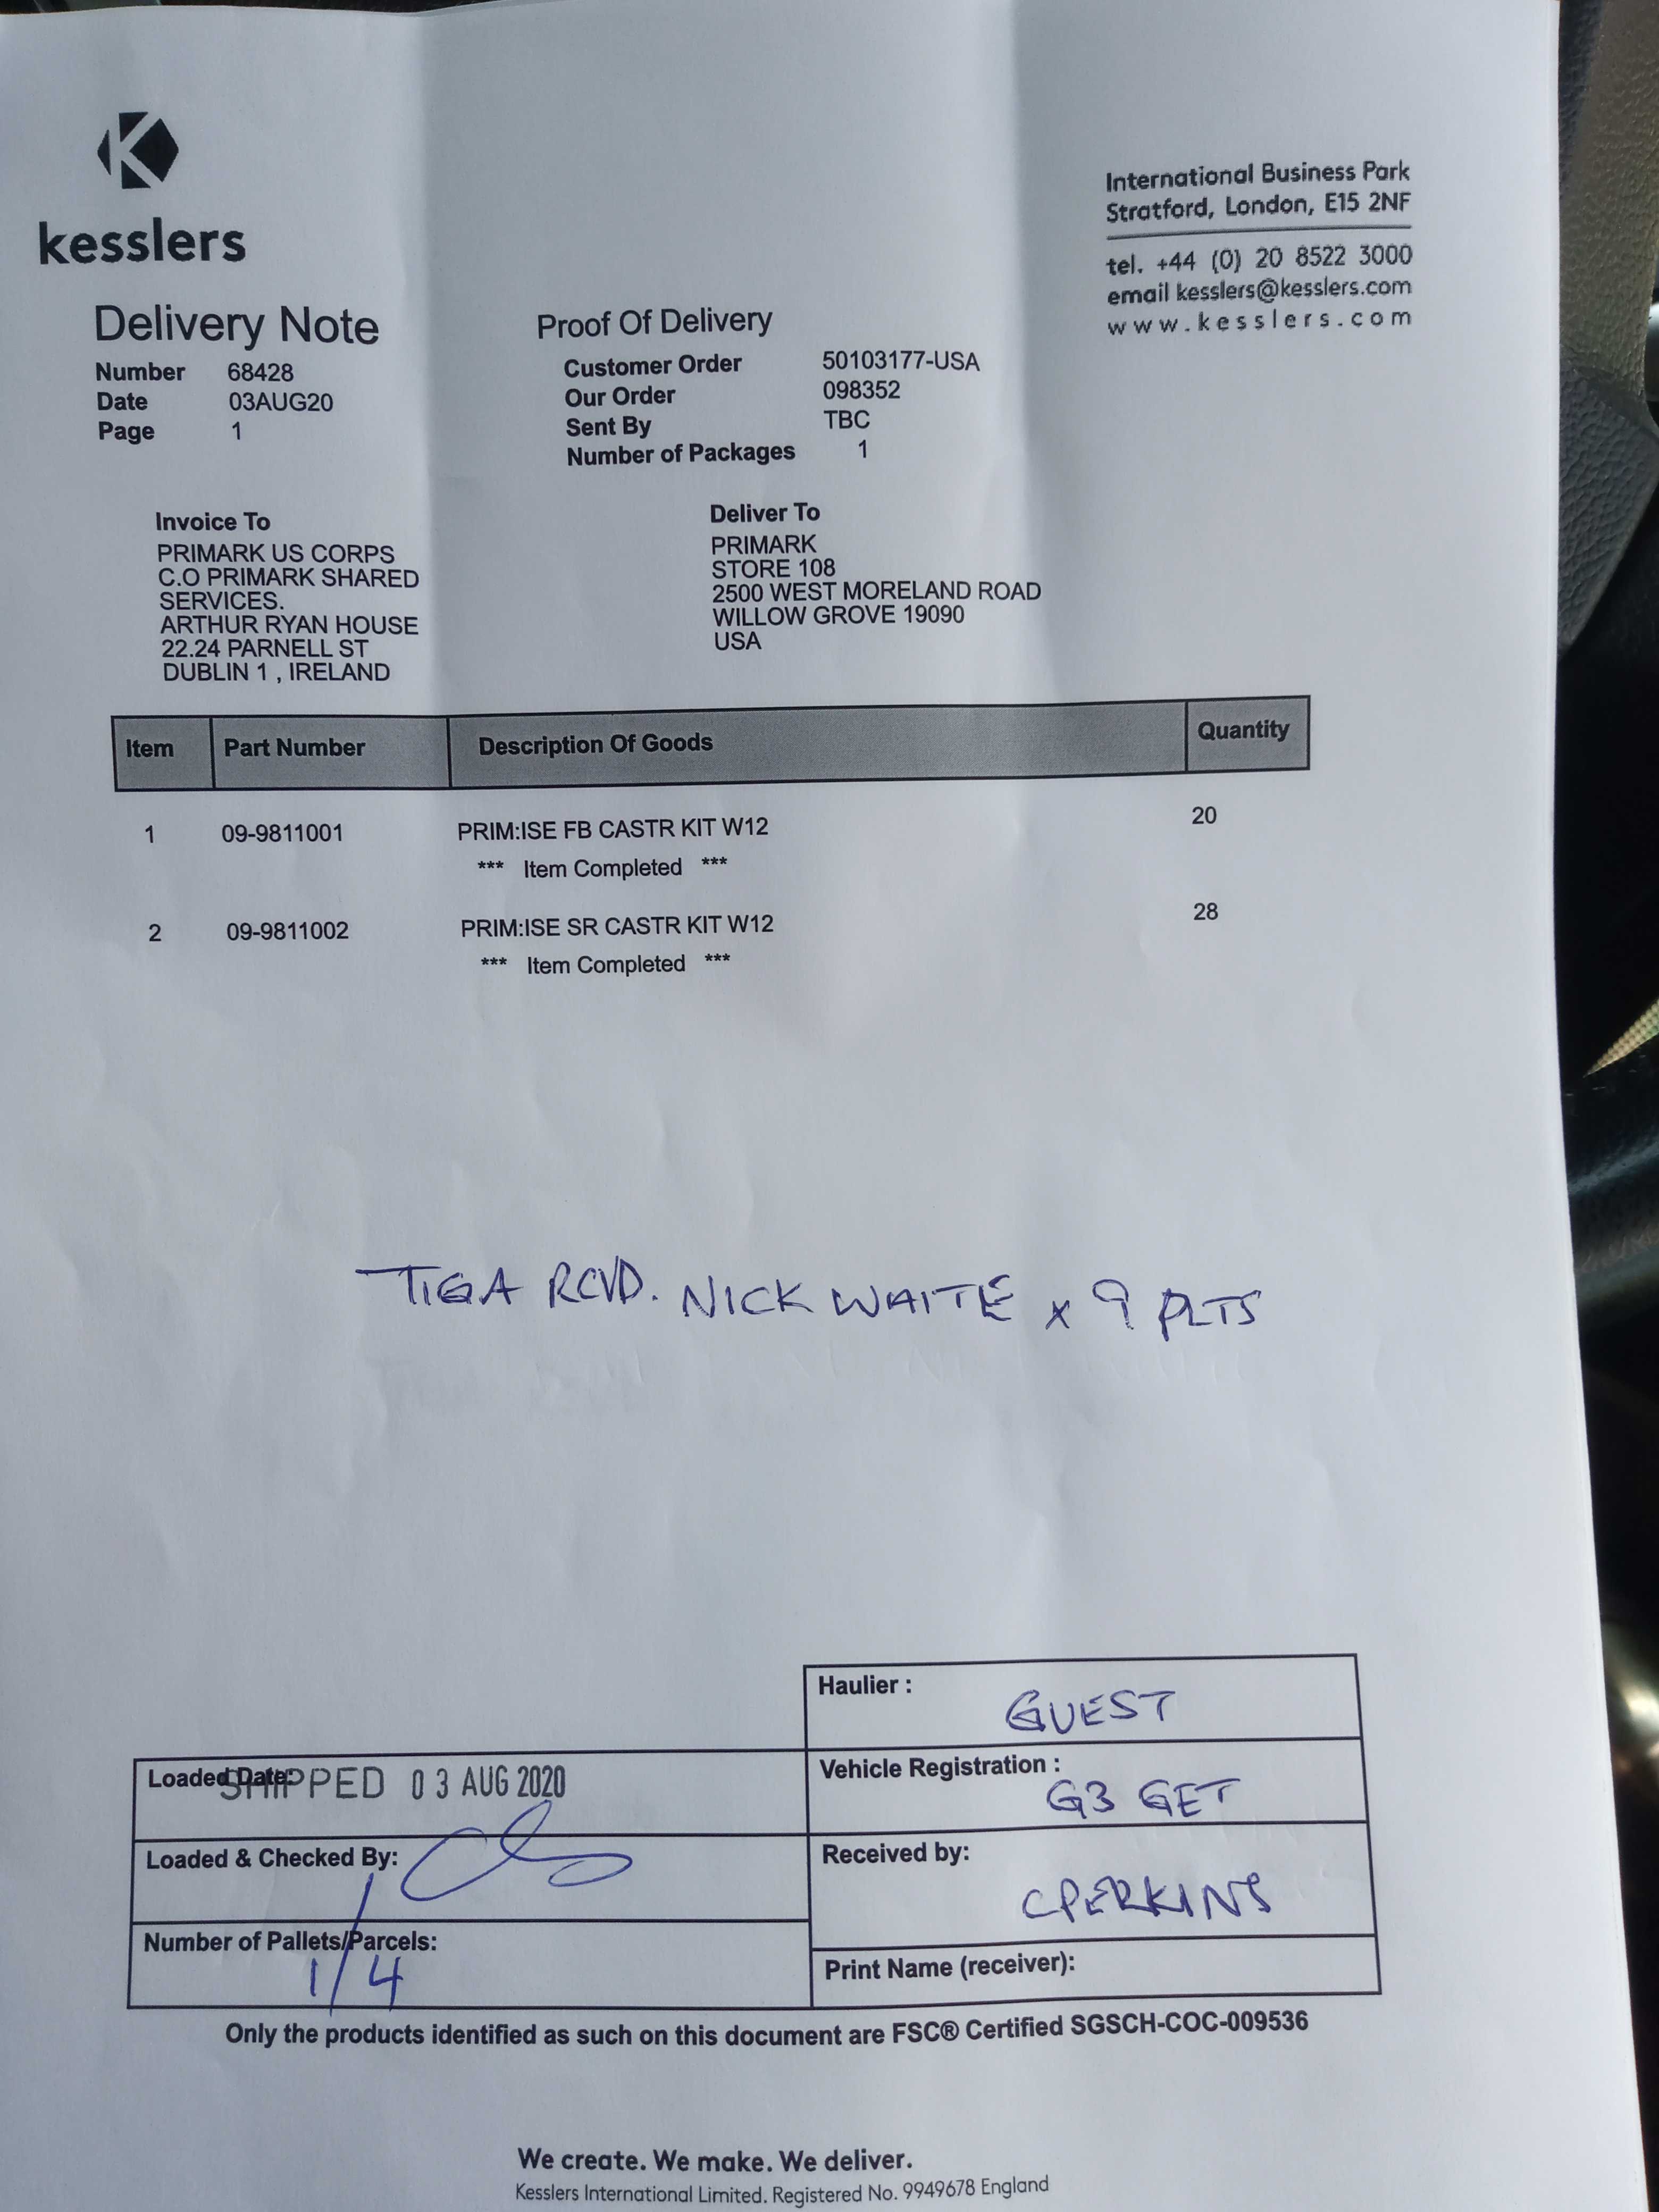 kesslers
International Business Park
Stratford, London, E15 2NF
tel. +44 (0) 20 8522 3000
email kesslers@kesslers.com
www.kesslers.com
Delivery Note
Number 68428
Date 03AUG20
Page 1
Proof Of Delivery
Customer Order 50103177-USA
Our Order 098352
Sent By TBC
Number of Packages 1
Invoice To
PRIMARK US CORPS
C.O PRIMARK SHARED
SERVICES.
ARTHUR RYAN HOUSE
22.24 PARNELL ST
DUBLIN 1 , IRELAND
Deliver To
PRIMARK
STORE 108
2500 WEST MORELAND ROAD
WILLOW GROVE 19090
USA
Item Part Number Description Of Goods Quantity
1 09-9811001 PRIM:ISE FB CASTR KIT W12 20
*** Item Completed ***
2 09-9811002 PRIM:ISE SR CASTR KIT W12 28
*** Item Completed ***
TIGA RCVD. NICK WAITE x 9 PLTS
Haulier :
GUEST
Loaded Date: SHIPPED 03 AUG 2020
Vehicle Registration :
G3 GET
Loaded & Checked By:
Received by:
CPERKINS
Number of Pallets/Parcels:
1/4
Print Name (receiver):
Only the products identified as such on this document are FSC® Certified SGSCH-COC-009536
We create. We make. We deliver.
Kesslers International Limited. Registered No. 9949678 England